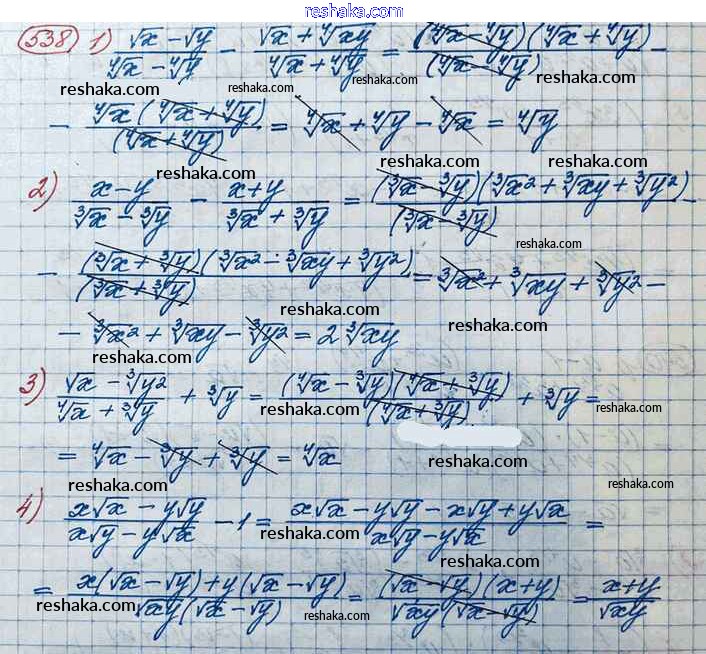 reshaka.com
538 1) (√x − √y)/(⁴√x − ⁴√y) − (√x + ⁴√xy)/(⁴√x + ⁴√y) = (⁴√x − ⁴√y)(⁴√x + ⁴√y)/(⁴√x − ⁴√y) −
reshaka.com reshaka.com reshaka.com
− ⁴√x(⁴√x + ⁴√y)/(⁴√x + ⁴√y) = ⁴√x + ⁴√y − ⁴√x = ⁴√y
reshaka.com reshaka.com
2) (x − y)/(³√x − ³√y) − (x + y)/(³√x + ³√y) = (³√x − ³√y)(³√x² + ³√xy + ³√y²)/(³√x − ³√y) −
reshaka.com reshaka.com
− (³√x + ³√y)(³√x² − ³√xy + ³√y²)/(³√x + ³√y) = ³√x² + ³√xy + ³√y² −
reshaka.com reshaka.com
− ³√x² + ³√xy − ³√y² = 2 ³√xy
reshaka.com reshaka.com
3) (√x − ³√y²)/(⁴√x + ³√y) + ³√y = (⁴√x − ³√y)(⁴√x + ³√y)/(⁴√x + ³√y) + ³√y =
reshaka.com reshaka.com
= ⁴√x − ³√y + ³√y = ⁴√x
reshaka.com reshaka.com
4) (x√x − y√y)/(x√y − y√x) − 1 = (x√x − y√y − x√y + y√x)/(x√y − y√x) =
reshaka.com reshaka.com reshaka.com
= (x(√x − √y) + y(√x − √y))/(√xy(√x − √y)) = (√x − √y)(x + y)/(√xy(√x − √y)) = (x + y)/√xy
reshaka.com reshaka.com reshaka.com